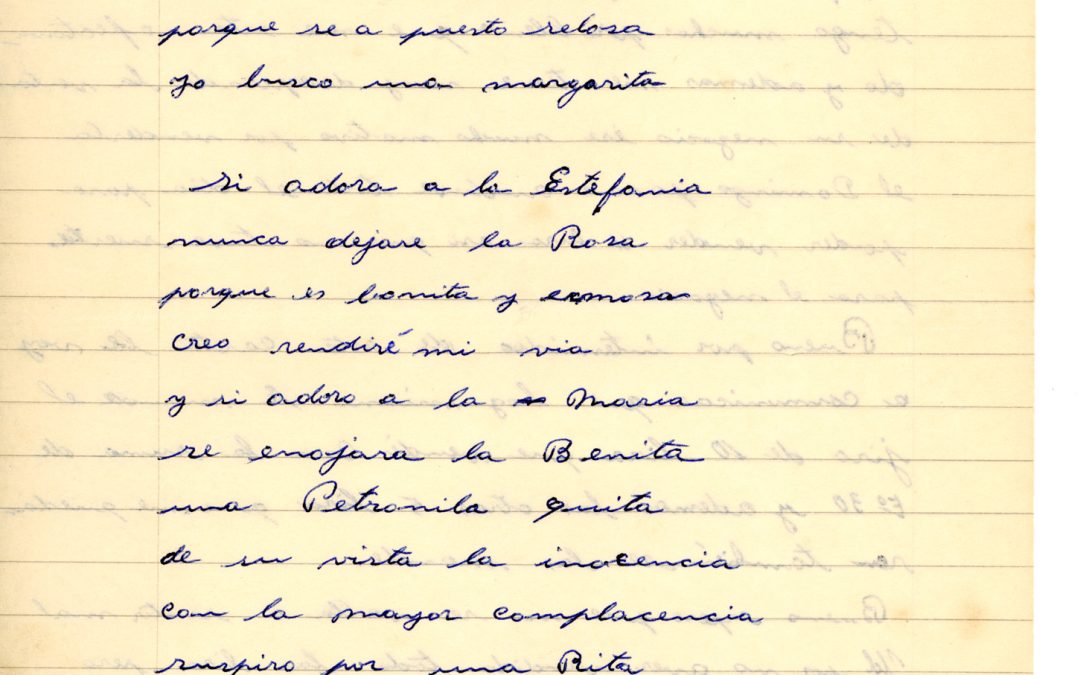 porque se a puesto selosa
yo busco una margarita
si adora a la Estefania
nunca dejare la Rosa
porque es bonita y ermosa
creo rendiré mi via
y si adoro a la Maria
se enojara la Benita
una Petronila quita
de su vista la inocencia
con la mayor complacencia
suspiro por una Rita